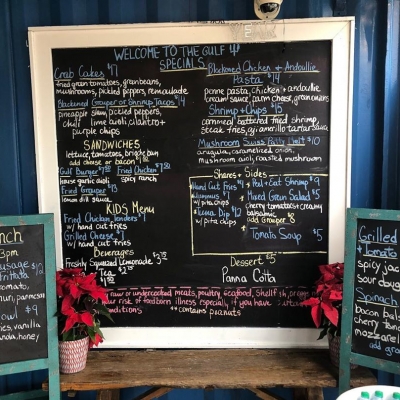 WELCOME TO THE GULF
SPECIALS
Crab Cakes $17
fried green tomatoes, green beans,
mushrooms, pickled peppers, remoulade
Blackened Grouper or Shrimp Tacos $14
pineapple slaw, pickled peppers,
chili lime aioli, cilantro +
purple chips
SANDWICHES
lettuce, tomatoes, bright bun
add cheese or bacon
Gulf Burger
house garlic aioli
Fried Chicken
spicy ranch
Fried Grouper $13
lemon dill sauce
KIDS Menu
Fried Chicken Tenders
w/ hand cut fries
Grilled Cheese
w/ hand cut fries
Beverages
Freshly Squeezed Lemonade
Tea
Blackened Chicken & Andouille
Pasta $14
penne pasta, chicken + andouille
cream sauce, parm cheese, green onions
Shrimp + Chips $15
cornmeal battered fried shrimp,
steak fries, aji amarillo tartar sauce
Mushroom Swiss Patty Melt $10
arugula, caramelized onion,
mushroom aioli, roasted mushrooms
Shares + Sides
Hand Cut Fries
Hummus $7
w/ pita chips
Dip $12
w/ pita chips
Peel + Eat Shrimp $9
Mixed Green Salad $5
cherry tomatoes + creamy
balsamic
add Grouper
Tomato Soup $5
Dessert
Panna Cotta
raw or undercooked meats, poultry, seafood, shellfish,
your risk of foodborn illness especially if you have
conditions ++ contains peanuts
nch
3pm
usage $10
tomato,
owl $9
vanilla
honey
Grilled
+ Tomato
spicy
sour
Spinach
bacon
cherry
mozzare
add